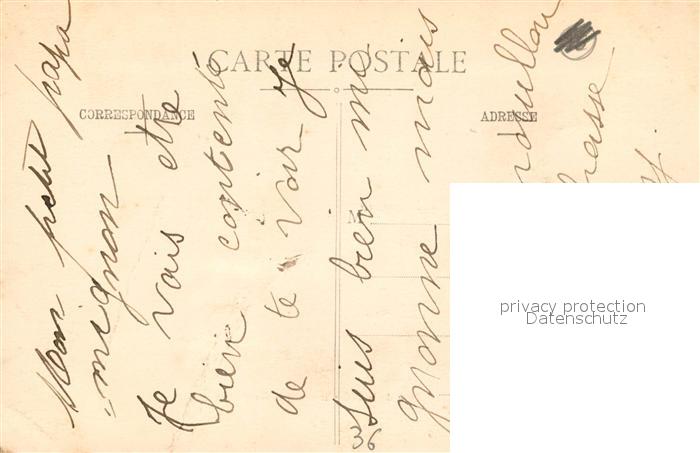 CARTE POSTALE
CORRESPONDANCE
ADRESSE
M
Mon petit papa
mignon
Je vais etre
bien contente
de te voir Je
suis bien mi
gnonne mais
36
privacy protection
Datenschutz